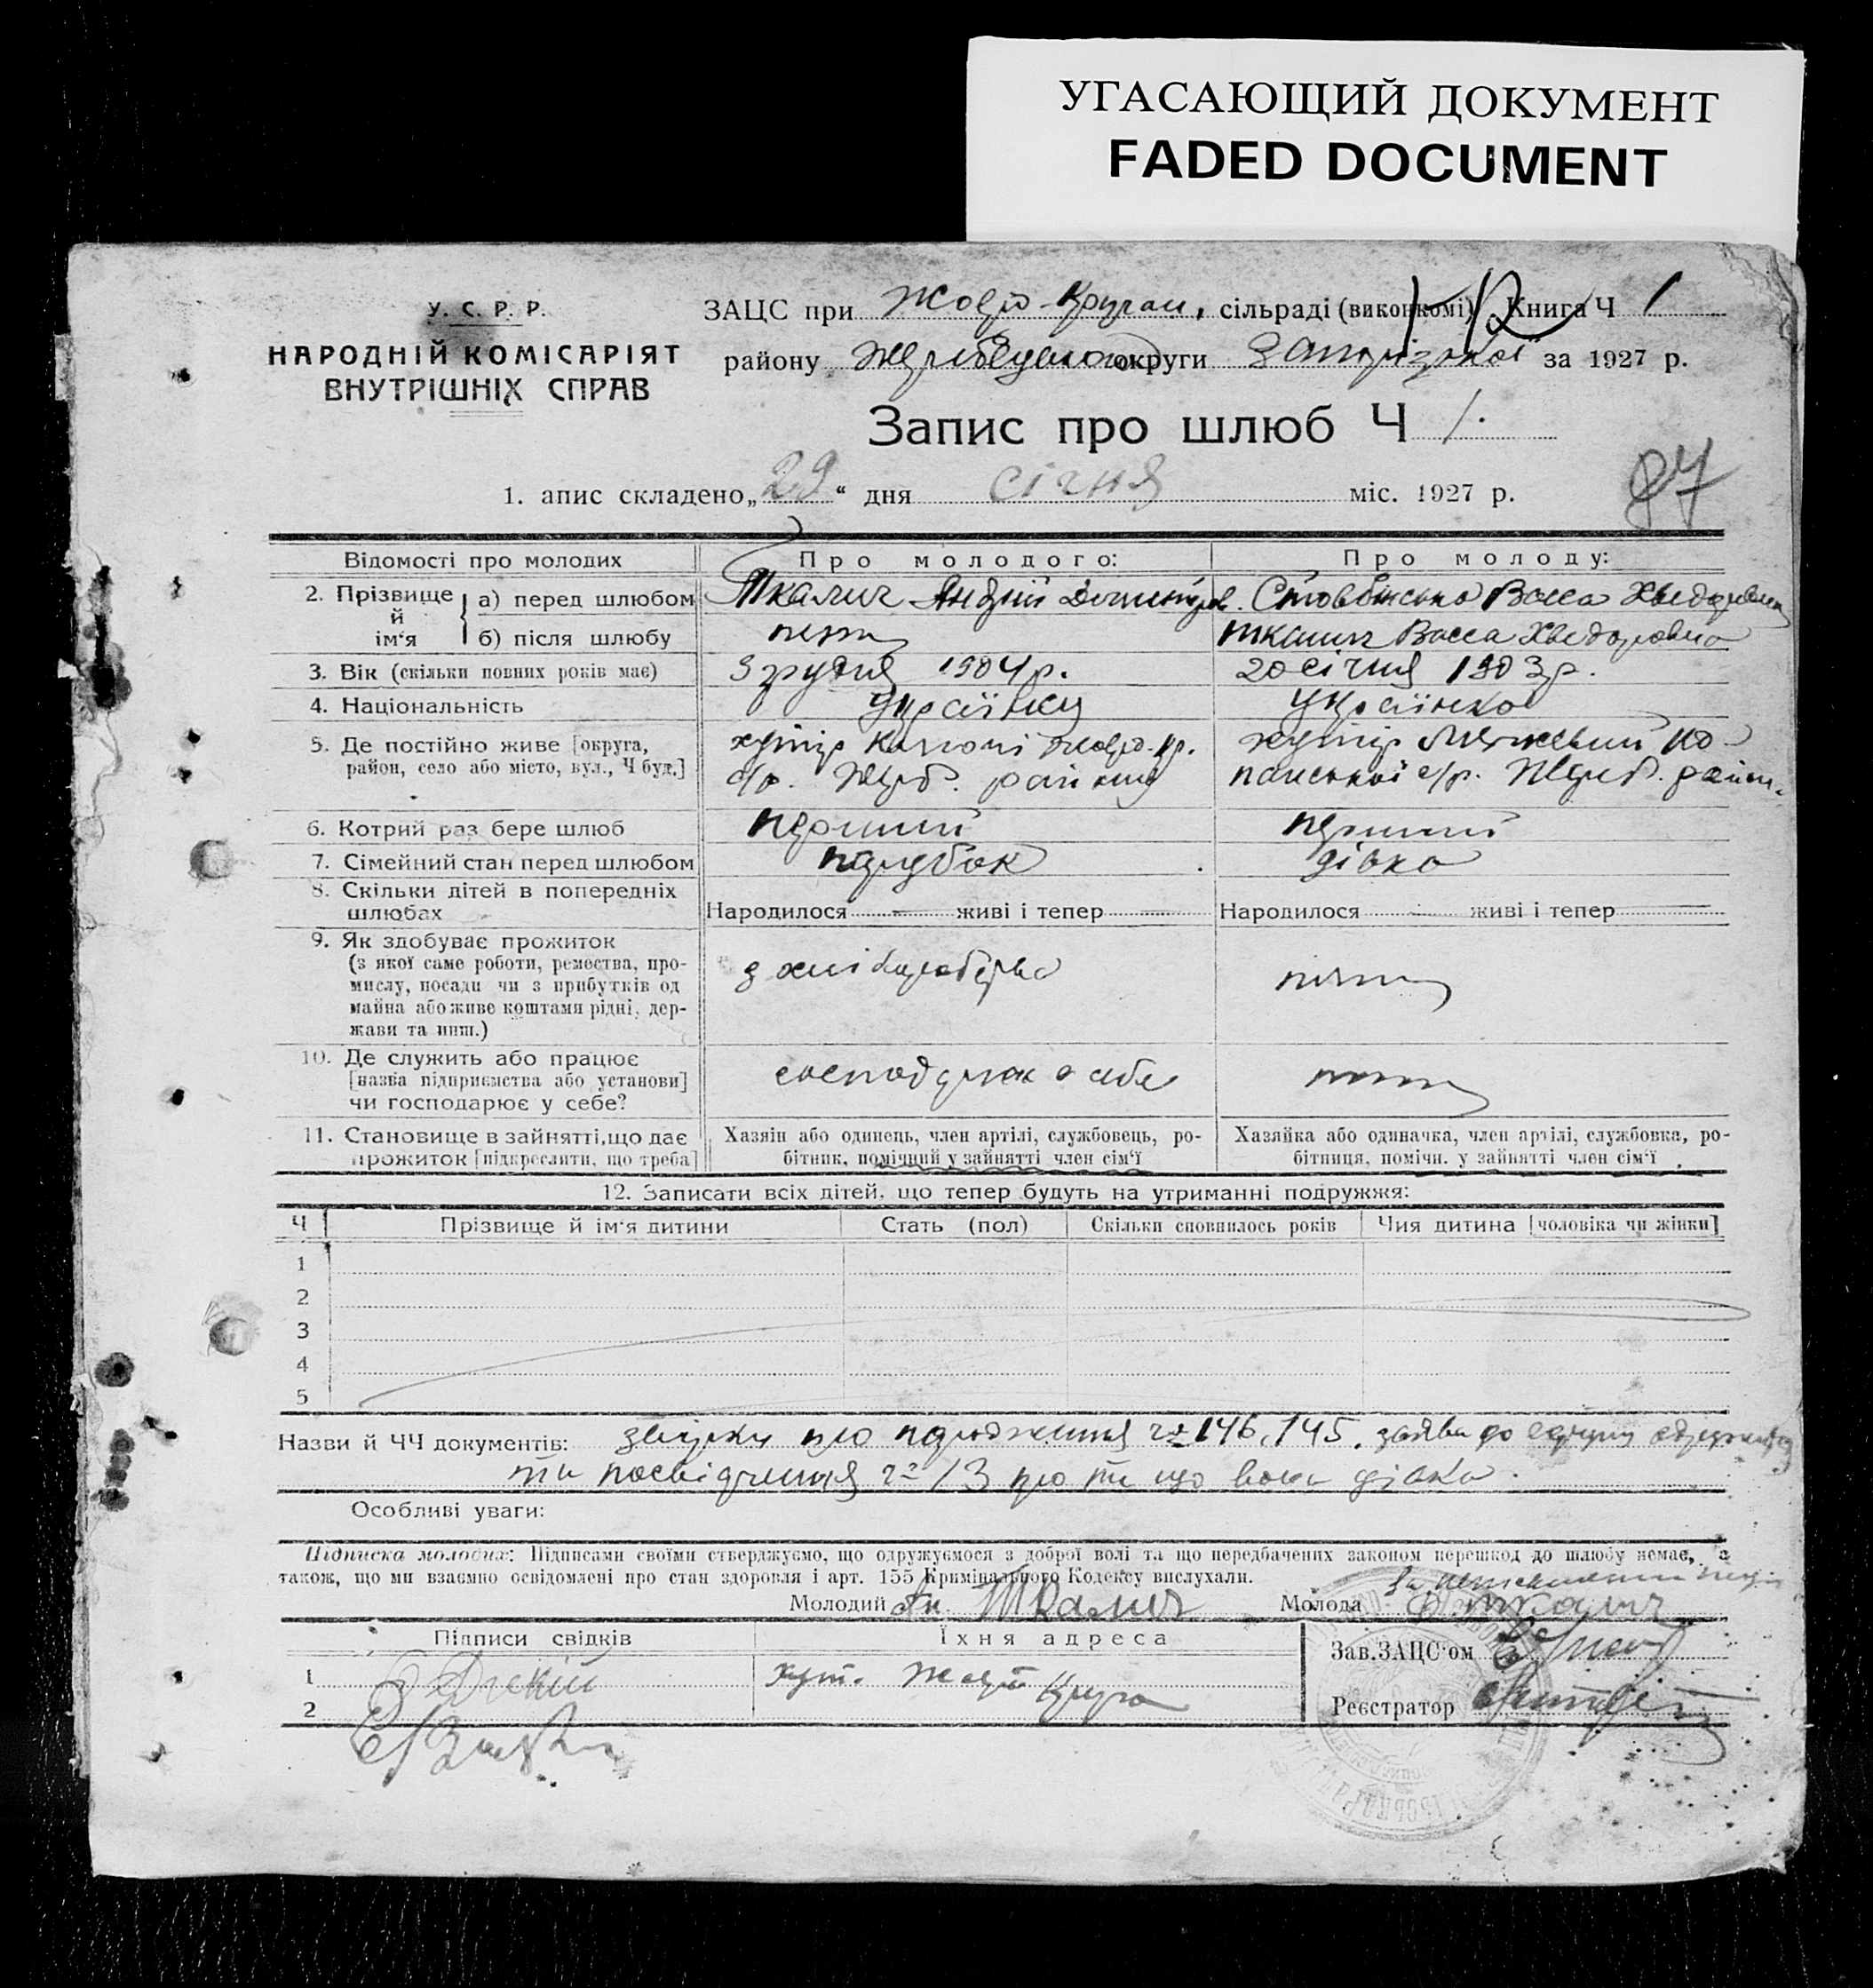 УГАСАЮЩИЙ ДОКУМЕНТ
FADED DOCUMENT
У. С. Р. Р.
НАРОДНІЙ КОМІСАРІЯТ
ВНУТРІШНІХ СПРАВ
ЗАЦС при Жовто-Круган. сільраді (виконкомі) Книга Ч 1
району округи Запорізької за 1927 р.
Запис про шлюб Ч 1.
87
1. апис складено „29“ дня січня міс. 1927 р.
Відомості про молодих Про молодого: Про молоду:
2. Прізвище й ім'я
а) перед шлюбом Ткалич Андрій Васса Хведоровна
б) після шлюбу Ткалич Васса Хведоровна
3. Вік (скільки повних років має) 3 грудня 1904 р. 20 січня 1903 р.
4. Національність Українец Українка
5. Де постійно живе [округа, район, село або місто, вул., Ч буд.]
хутір с/р. Жереб. району
хутір с/р. Жереб. район.
6. Котрий раз бере шлюб перший перший
7. Сімейний стан перед шлюбом парубок дівка
8. Скільки дітей в попередніх шлюбах
Народилося — живі і тепер — Народилося — живі і тепер —
9. Як здобуває прожиток
(з якої саме роботи, ремества, про-
мислу, посади чи з прибутків од
майна або живе коштами рідні, дер-
жави та инш.)
з хліборобства
10. Де служить або працює
[назва підприємства або установи]
чи господарює у себе?
у себе
11. Становище в зайнятті, що дає
прожиток [підкреслити, що треба]
Хазяїн або одинець, член артілі, службовець, ро-
бітник, помічний у зайнятті член сім'ї
Хазяйка або одиначка, член артілі, службовка, ро-
бітниця, помічн. у зайнятті член сім'ї
12. Записати всіх дітей, що тепер будуть на утриманні подружжя:
Ч Прізвище й ім'я дитини Стать (пол) Скільки сповнилось років Чия дитина [чоловіка чи жінки]
1
2
3
4
5
Назви й ЧЧ документів: про народження чч 146, 145. заява до
та посвідчення ч 13 про те що вона дівка.
Особливі уваги:
Підписка молодих: Підписами своїми стверджуємо, що одружуємося з доброї волі та що передбачених законом перешкод до шлюбу немає, а
також, що ми взаємно освідомлені про стан здоровля і арт. 155 Кримінального Кодексу вислухали.
Молодий Ан. Ткалич Молода Ткалич
Підписи свідків Їхня адреса
Зав. ЗАЦС'ом
1 хут. Жовт Круча
2
Реєстратор